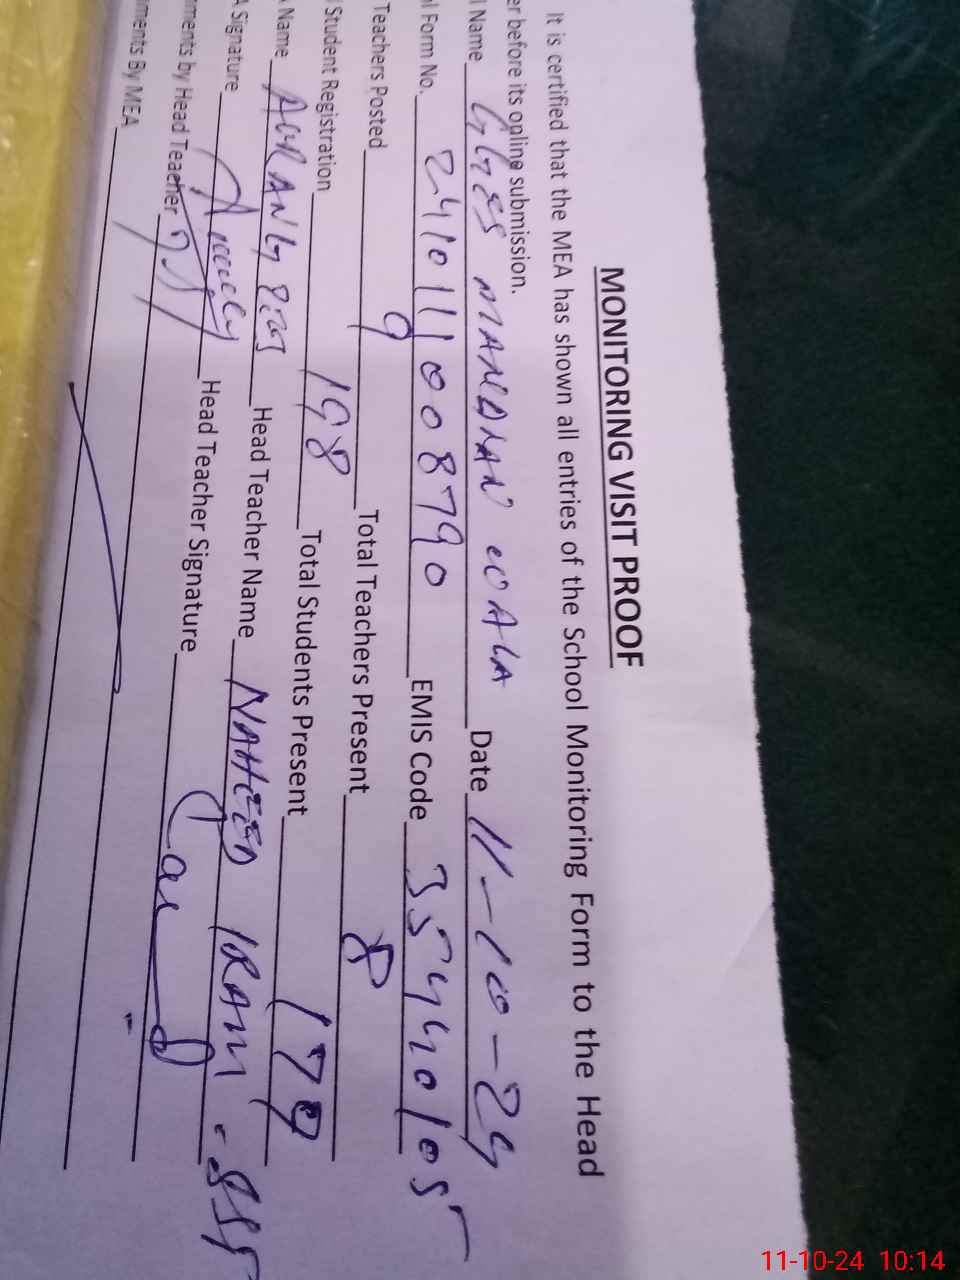 MONITORING VISIT PROOF
It is certified that the MEA has shown all entries of the School Monitoring Form to the Head
er before its online submission.
l Name GGES MANDAN WALA Date 11-10-24
l Form No. 2410111008790 EMIS Code 35440105
Teachers Posted 9 Total Teachers Present 8
l Student Registration 198 Total Students Present 179
A Name AURANG ZEB Head Teacher Name NAHEED IRAM - SST
A Signature Head Teacher Signature
ments by Head Teacher
ments By MEA
11-10-24 10:14